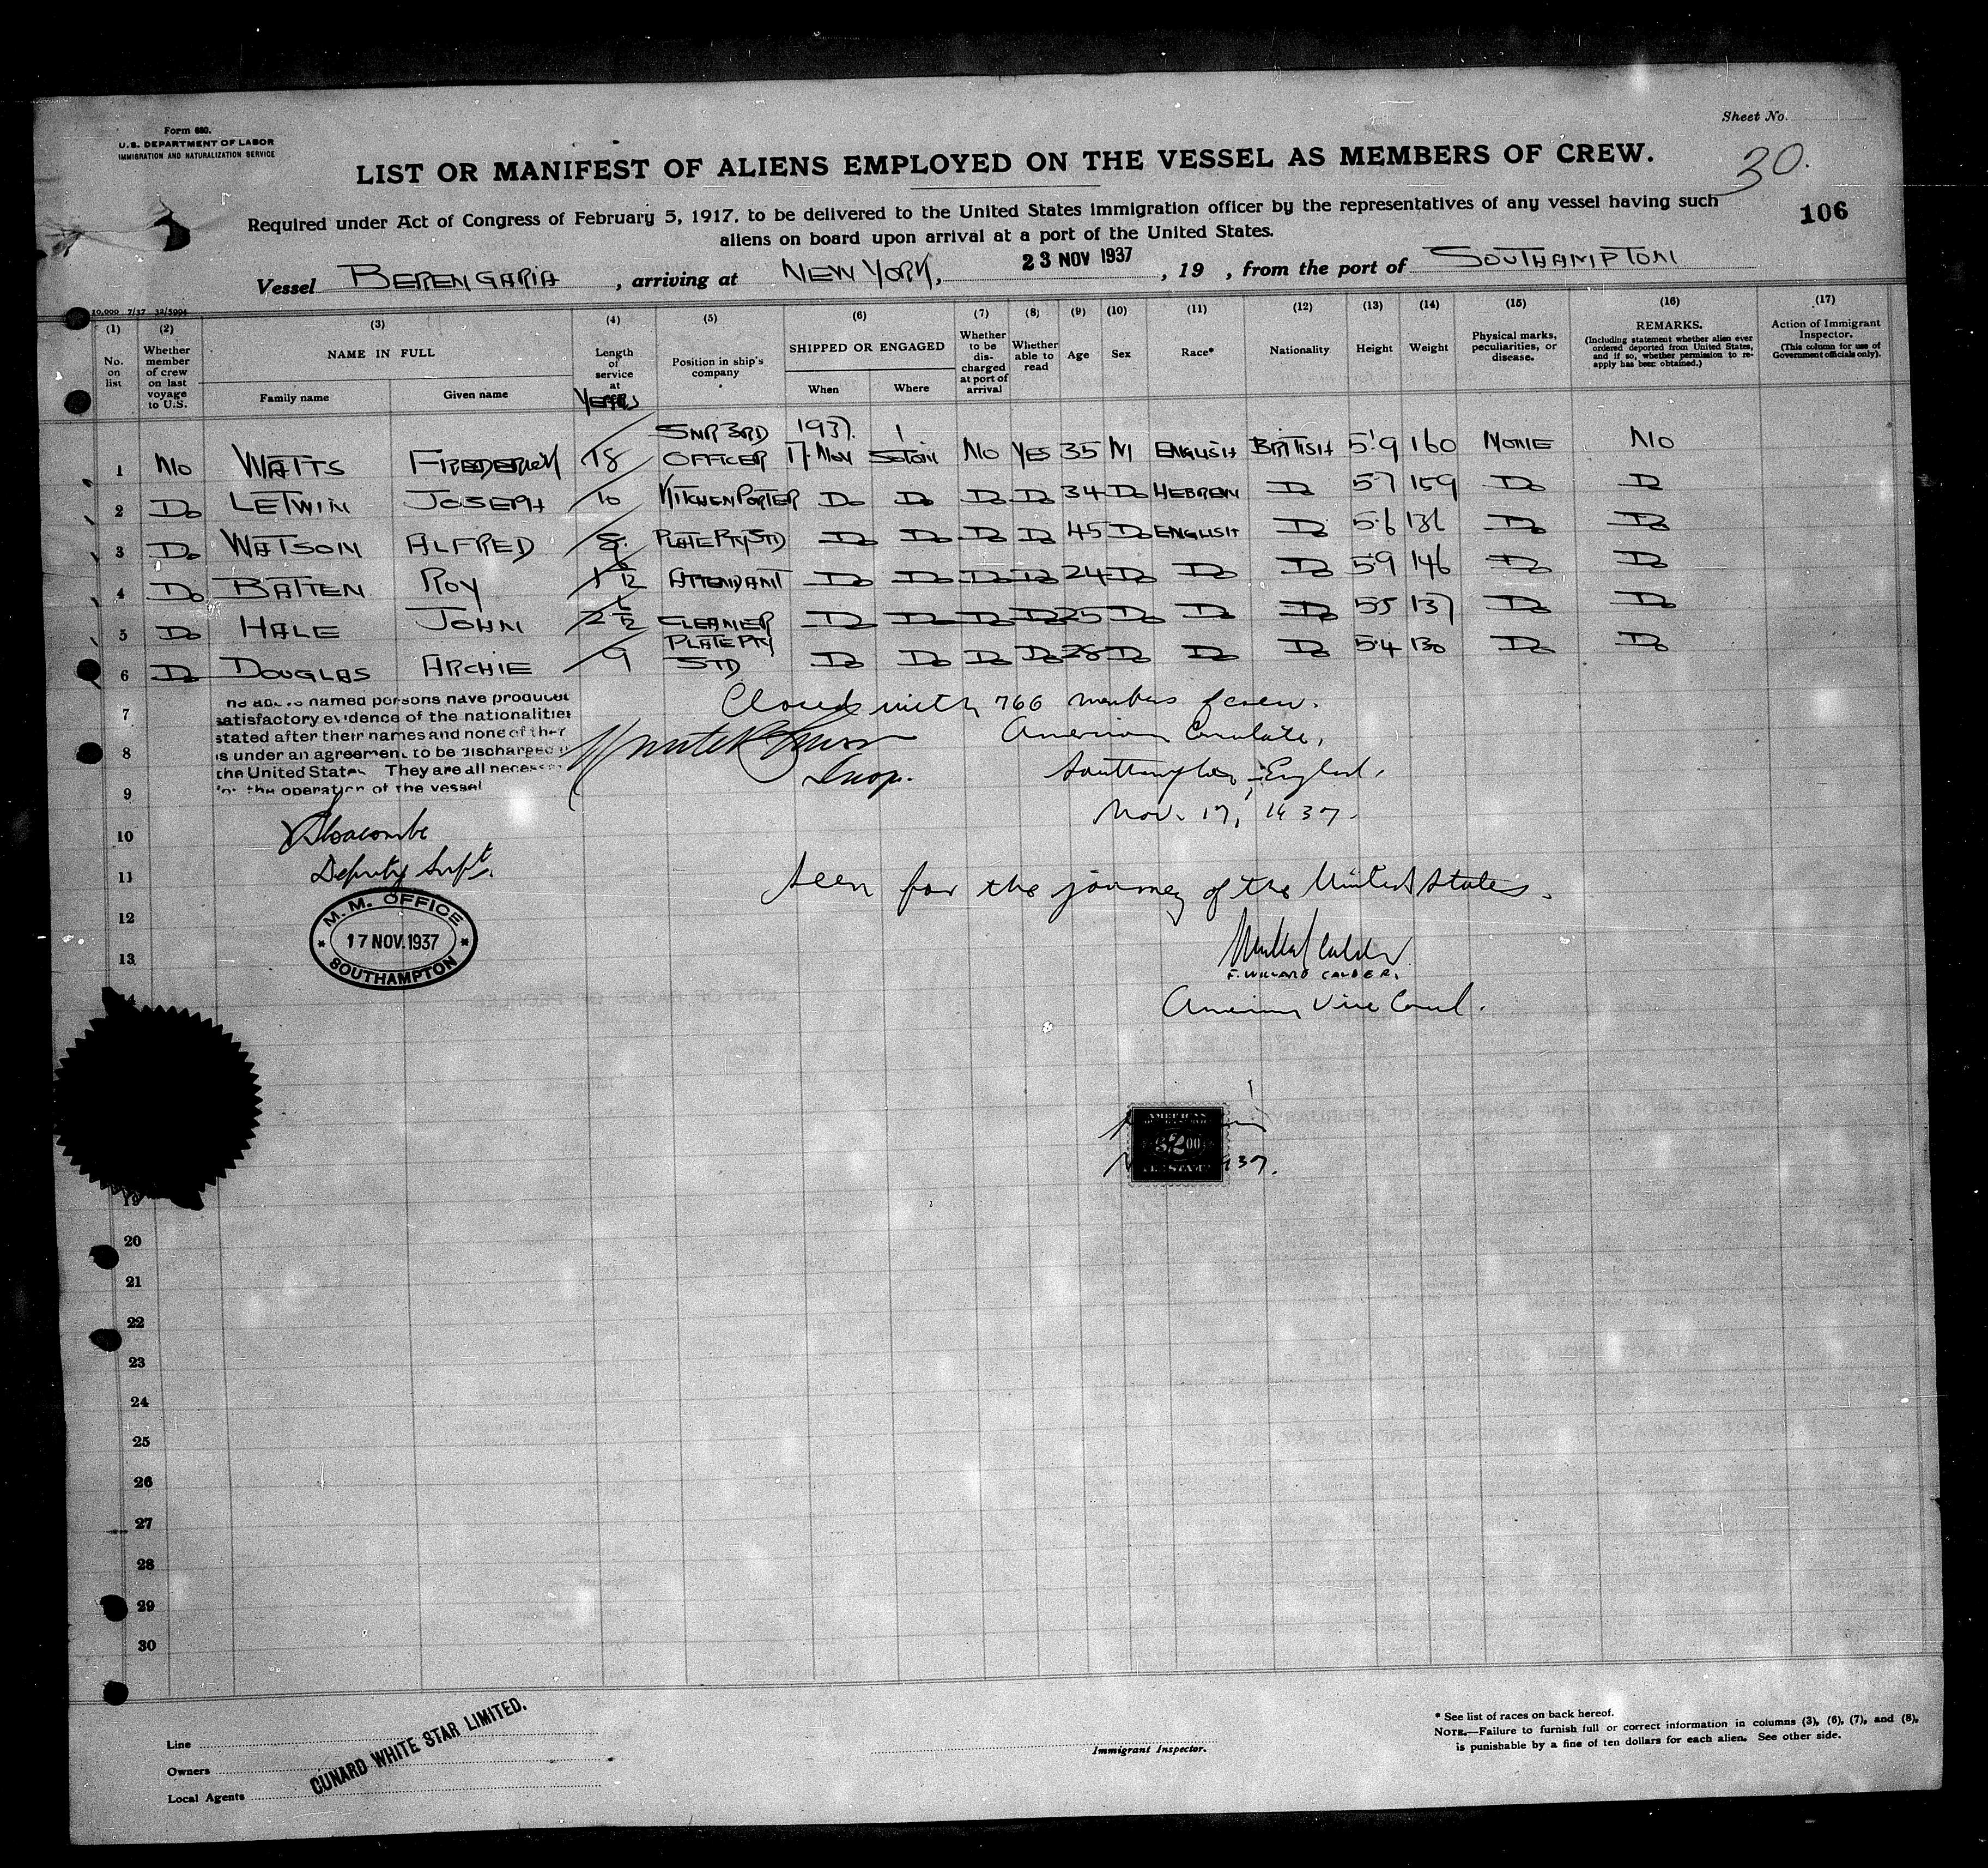 Sheet No.
Form 680.
U.S. DEPARTMENT OF LABOR
IMMIGRATION AND NATURALIZATION SERVICE
LIST OR MANIFEST OF ALIENS EMPLOYED ON THE VESSEL AS MEMBERS OF CREW.
30.
106
Required under Act of Congress of February 5, 1917, to be delivered to the United States immigration officer by the representatives of any vessel having such
aliens on board upon arrival at a port of the United States.
Vessel BERENGARIA, arriving at NEW YORK, 23 NOV 1937, 19 , from the port of SOUTHAMPTON
10,000 7/37 32/5994
(1) No. on list
(2) Whether member of crew on last voyage to U.S.
(3) NAME IN FULL Family name Given name
(4) Length of service at YEARS
(5) Position in ship's company
(6) SHIPPED OR ENGAGED When Where
(7) Whether to be discharged at port of arrival
(8) Whether able to read
(9) Age
(10) Sex
(11) Race*
(12) Nationality
(13) Height
(14) Weight
(15) Physical marks, peculiarities, or disease.
(16) REMARKS. (Including statement whether alien ever ordered deported from United States, and if so, whether permission to re-apply has been obtained.)
(17) Action of Immigrant Inspector. (This column for use of Government officials only).
1 NO WATTS FREDERICK 18 SNR 3RD OFFICER 1937. 17 NOV SOTON NO YES 35 M ENGLISH BRITISH 5'9 160 NONE NO
2 DO LETWIN JOSEPH 10 KITCHEN PORTER DO DO DO DO 34 DO HEBREW DO 5·7 159 DO DO
3 DO WATSON ALFRED PLATE PTY STD DO DO DO DO 45 DO ENGLISH DO 5·6 136 DO DO
4 DO BATTEN ROY ATTENDANT DO DO DO DO 24 DO DO DO 5·9 146 DO DO
5 DO HALE JOHN CLEANER DO DO DO DO 25 DO DO DO 5·5 137 DO DO
6 DO DOUGLAS ARCHIE 9 PLATE PTY STD DO DO DO DO 28 DO DO DO 5·4 130 DO DO
7
8
9
10
11
12
13
named persons have produced
satisfactory evidence of the nationalities
stated after their names and none of them
is under an agreement to be discharged in
the United States They are all necessary
for the operation of the vessel
Deputy Supt.
M. M. OFFICE
17 NOV. 1937
SOUTHAMPTON
Closed with 766 members of crew.
American Consulate,
Southampton, England,
Nov. 17, 1937.
Insp.
Seen for the journey of the United States.
F. WILLARD CALDER.
American Vice Consul.
AMERICAN
$2.00
FEE STAMP
937.
19
20
21
22
23
24
25
26
27
28
29
30
Line
Owners
Local Agents
CUNARD WHITE STAR LIMITED.
Immigrant Inspector.
* See list of races on back hereof.
NOTE.—Failure to furnish full or correct information in columns (3), (6), (7), and (8),
is punishable by a fine of ten dollars for each alien. See other side.